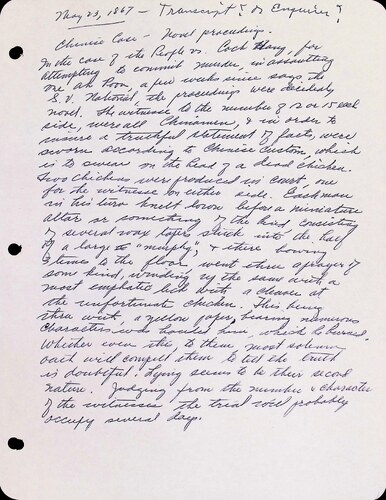 May 23, 1867 – Transcript? or Enquirer?
Chinese Case – Novel proceedings.
In the case of the People vs. Coch Hang, for
attempting to commit murder, in assaulting
one Ah Poon, a few weeks since says, the
S.J. National, the proceedings were decidedly
novel. The witnesses to the number of 12 or 15 each
side, were all Chinamen, & in order to
insure a truthful statement of facts, were
sworn according to Chinese custom, which
is to swear on the head of a dead chicken.
Two chickens were produced in court, one
for the witnesses on either side. Each man
in his turn knelt down before a miniature
altar or something of the kind, consisting
of several wax tapers stuck into the half
of a large "murphy", & there bowing
3 times to the floor went thru a prayer of
some kind, winding up the same with a
most emphatic hack with a cleaver at
the unfortunate chicken. This being
thru with, a yellow paper bearing numerous
characters was handed him, which he burned.
Whether even this, to them, most solemn
oath will compel them to tell the truth
is doubtful. Lying seems to be their second
nature. Judging from the number & character
of the witnesses the trial will probably
occupy several days.